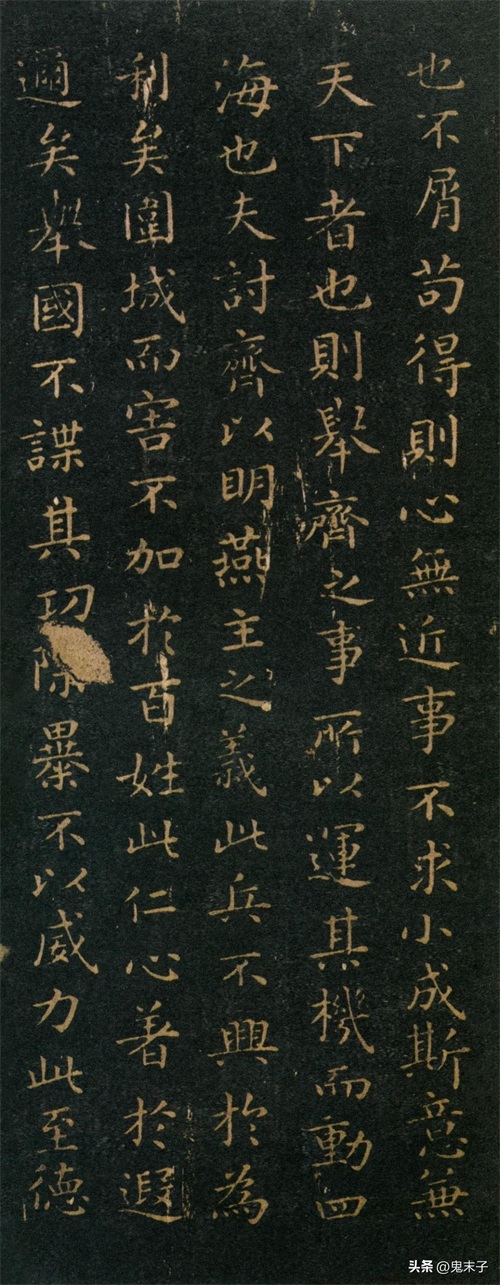 也不屑苟得則心無近事不求小成斯意無
天下者也則舉齊之事所以運其機而動四
海也夫討齊以明燕主之義此兵不興於為
利矣圍城而害不加於百姓此仁心著於遐
邇矣舉國不謀其功除暴不以威力此至德
头条 @鬼末子